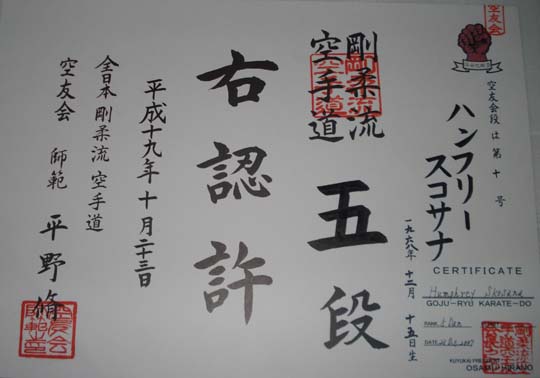 空友会
空友会段は第十号
ハンフリー
スコサナ
一九六八年 十二月 十五日生
CERTIFICATE
Humphrey Skosana
GOJU-RYU KARATE-DO
RANK 5 Dan
DATE
KUYUKAI PRESIDENT
OSAMU HIRANO
剛柔流
空手道
五段
右認許
平成十九年十月二十三日
全日本剛柔流空手道
空友会 師範 平野脩